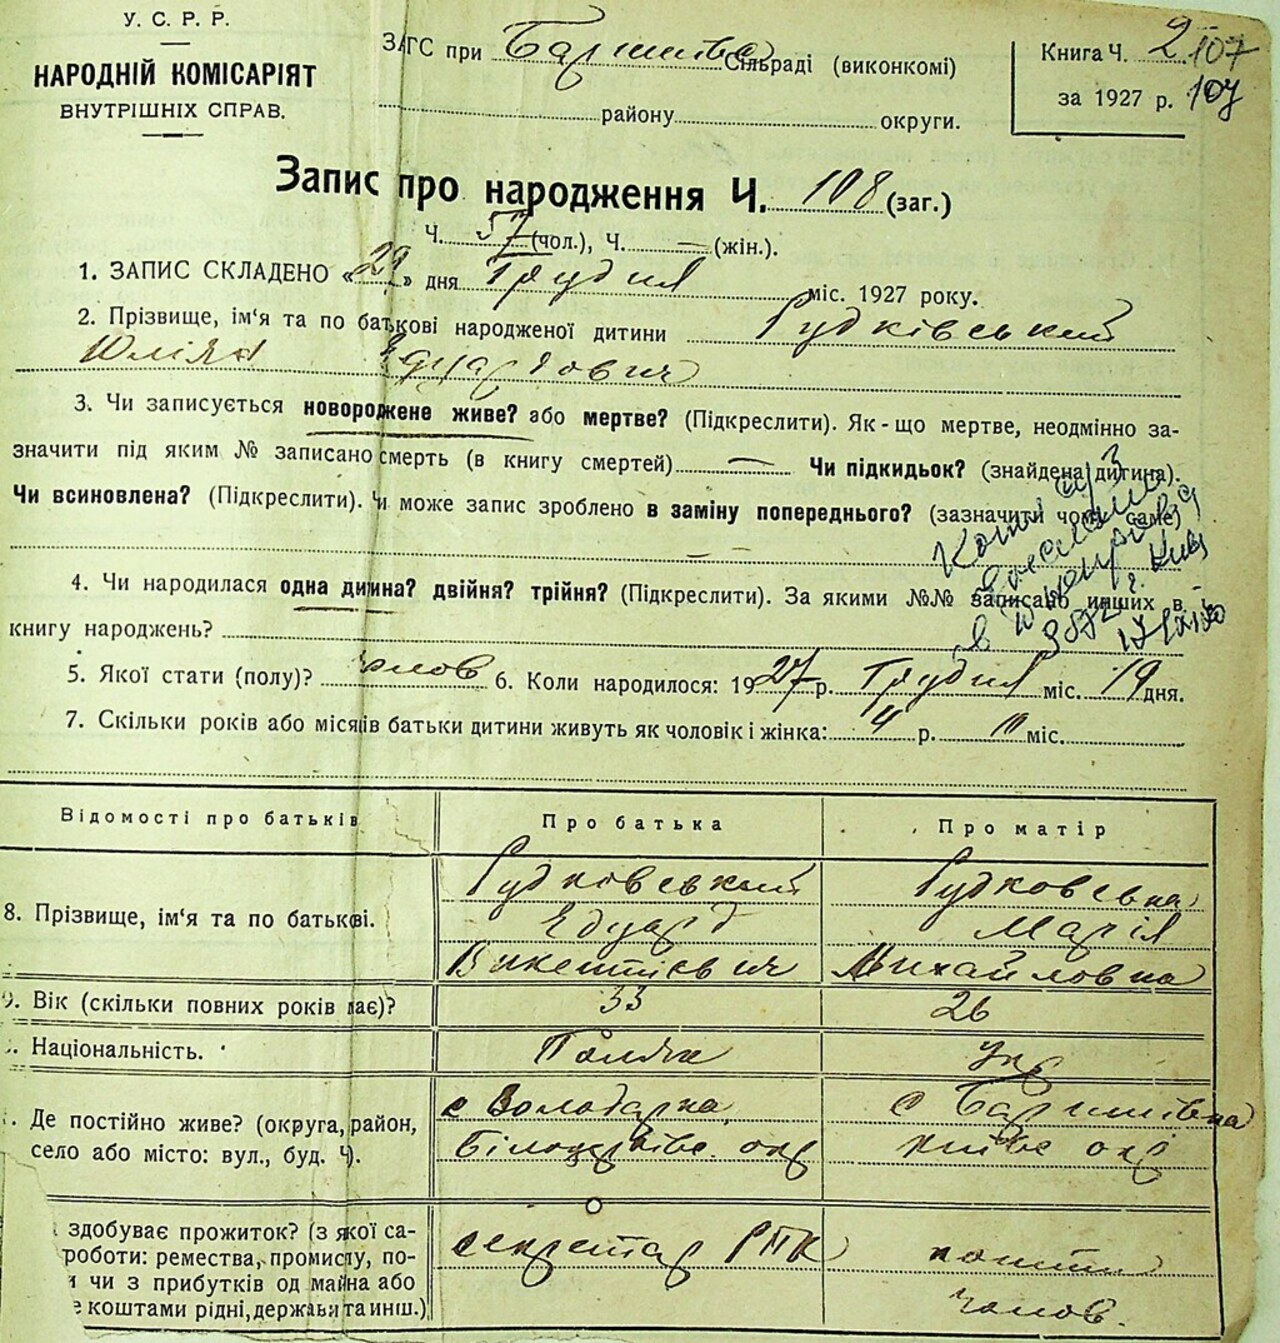 У. С. Р. Р.
НАРОДНІЙ КОМІСАРІЯТ
ВНУТРІШНІХ СПРАВ.
ЗАГС при Баришівск Сільраді (виконкомі)
району округи.
Книга Ч. 2 107
за 1927 р. 107
Запис про народження Ч. 108 (заг.)
Ч. 57 (чол.), Ч. — (жін.).
1. ЗАПИС СКЛАДЕНО «29» дня Грудня міс. 1927 року.
2. Прізвище, ім'я та по батькові народженої дитини Рудківський
Юліян Едуардович
3. Чи записується новороджене живе? або мертве? (Підкреслити). Як-що мертве, неодмінно за-
значити під яким № записано смерть (в книгу смертей) — Чи підкидьок? (знайдена дитина).
Чи всиновлена? (Підкреслити). Чи може запис зроблено в заміну попереднього? (зазначити чому саме)
4. Чи народилася одна дитина? двійня? трійня? (Підкреслити). За якими №№ записано инших в
книгу народжень?
5. Якої стати (полу)? чолов 6. Коли народилося: 1927 р. Грудня міс. 19 дня.
7. Скільки років або місяців батьки дитини живуть як чоловік і жінка: 4 р. міс.
Відомості про батьків Про батька Про матір
8. Прізвище, ім'я та по батькові. Рудковський Рудковська
Едуард Марія
Викентієвич Михайловна
9. Вік (скільки повних років має)? 33 26
Національність. Поляк Укр
Де постійно живе? (округа, район, с Володарка с Баришівка
село або місто: вул., буд. Ч). Білоцерківс. окр Київс окр
здобуває прожиток? (з якої са-
роботи: ремества, промислу, по- секретар РПК кошти
и чи з прибутків од майна або
е коштами рідні, держави та инш.) чолов.